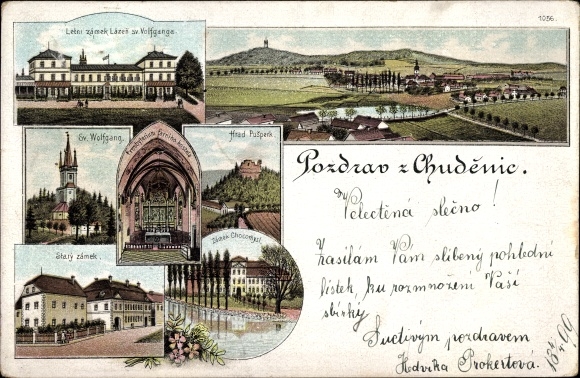 1056.
Letní zámek Lázeň sv. Wolfganga.
Sv. Wolfgang.
Presbyterium farního kostela
Hrad Pušperk.
Starý zámek.
Zámek Chocomyšl.
Pozdrav z Chuděnic.
Velectěná slečno!
Zasílám Vám slíbený pohlední
lístek, ku rozmnožení Vaší
sbírky
Suctivým pozdravem
Hedvika Prokertová.